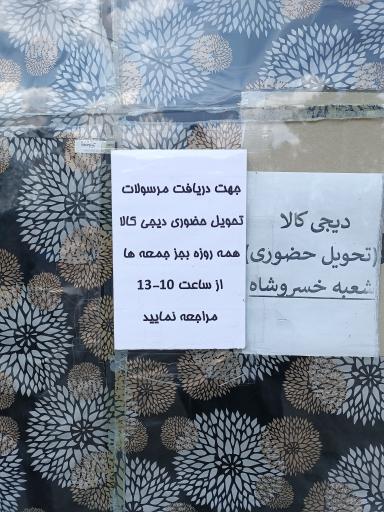 دیجی کالا
(تحویل حضوری)
شعبه خسروشاه
جهت دریافت مرسولات
تحویل حضوری دیجی کالا
همه روزه بجز جمعه ها
از ساعت 10-13
مراجعه نمایید